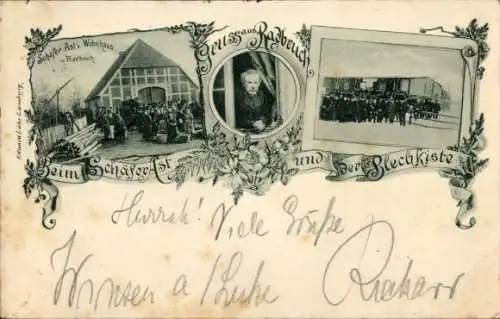 Schäfer Ast's Wohnhaus
in Radbruch
Gruss aus Radbruch
Beim Schäfer Ast und der Blechkiste
Hurrah! Viele Grüße
Winsen a/Luhe Richard